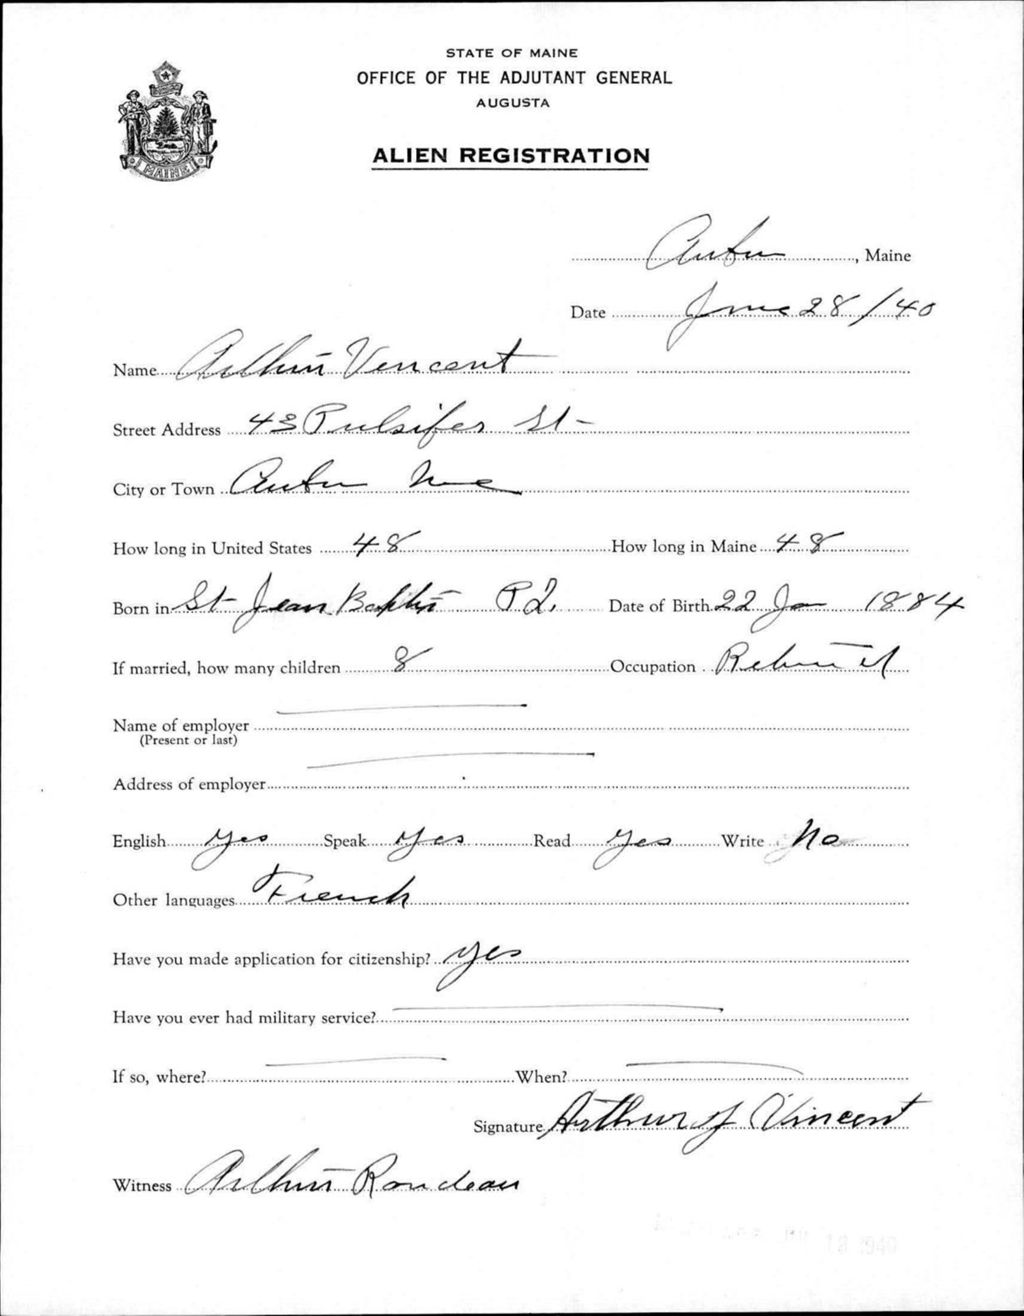 STATE OF MAINE
OFFICE OF THE ADJUTANT GENERAL
AUGUSTA
ALIEN REGISTRATION
MAINE
Auburn, Maine
Date June 28/40
Name Arthur Vencent
Street Address 43 Pulsifer St-
City or Town Auburn Me
How long in United States 48 How long in Maine 48
Born in St-Jean Baptist P.Q. Date of Birth 22 Jan 1884
If married, how many children 8 Occupation
Name of employer
(Present or last)
Address of employer
English Yes Speak Yes Read Yes Write No
Other languages French
Have you made application for citizenship? Yes
Have you ever had military service?
If so, where? When?
Signature Arthur J Vincent
Witness Arthur Rondeau